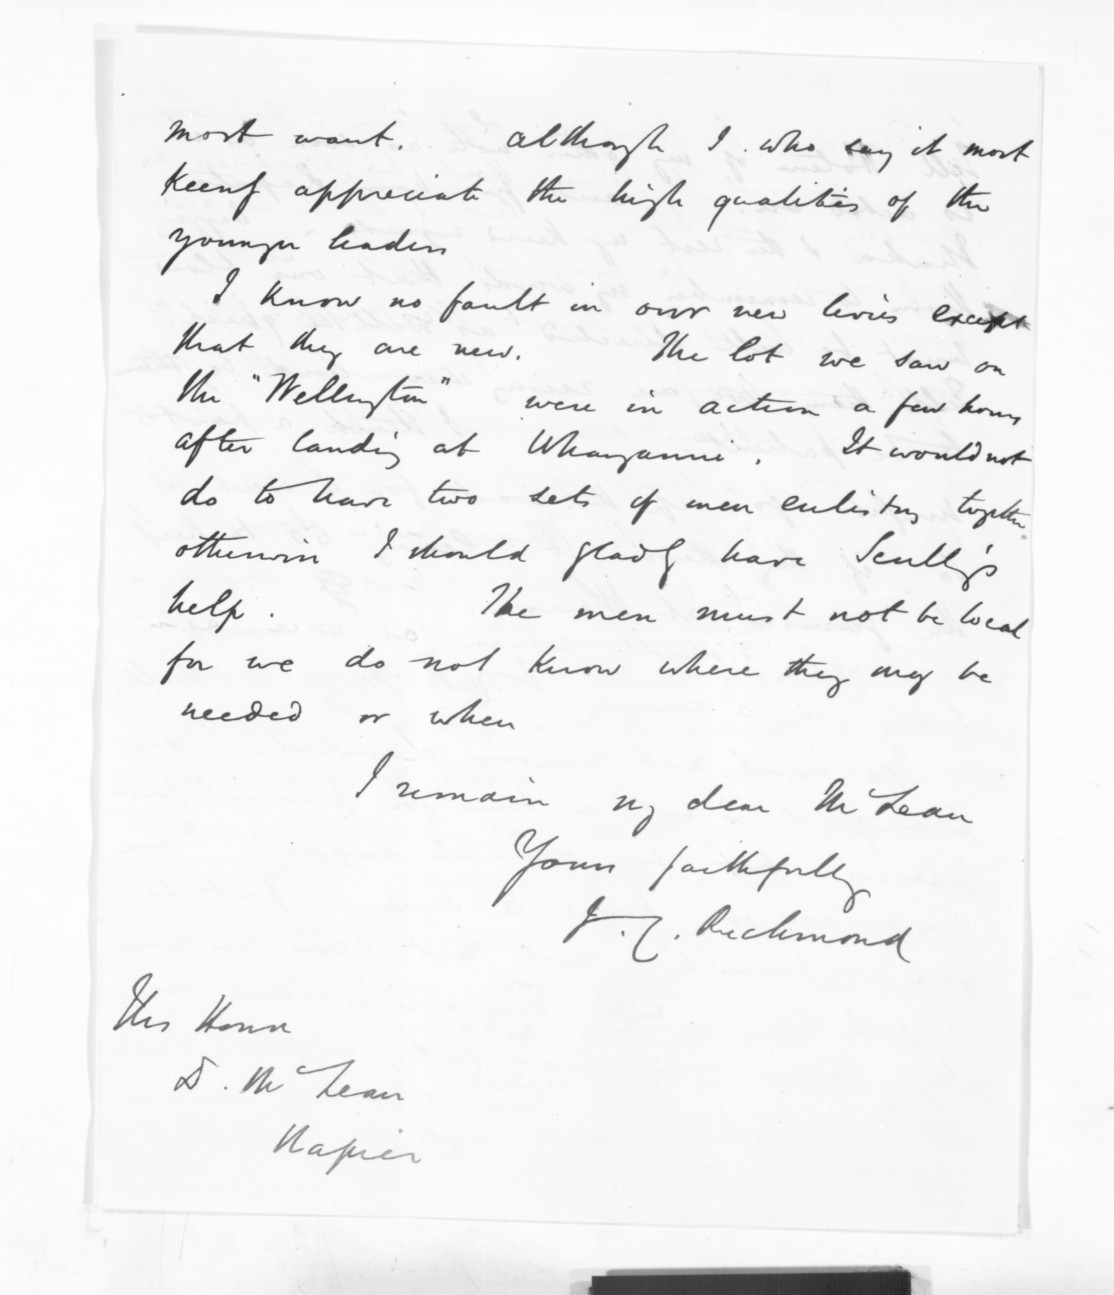 most want. although I who say it most
keenly appreciate the high qualities of the
younger leaders
I know no fault in our new levies except
that they are new. The lot we saw on
the "Wellington" were in action a few hours
after landing at Whanganui. It would not
do to have two sets of men enlisting together
otherwise I should gladly have Scully's
help. The men must not be local
for we do not know where they may be
needed or when
I remain my dear McLean
Yours faithfully
J. C. Richmond
His Honor
D. McLean
Napier